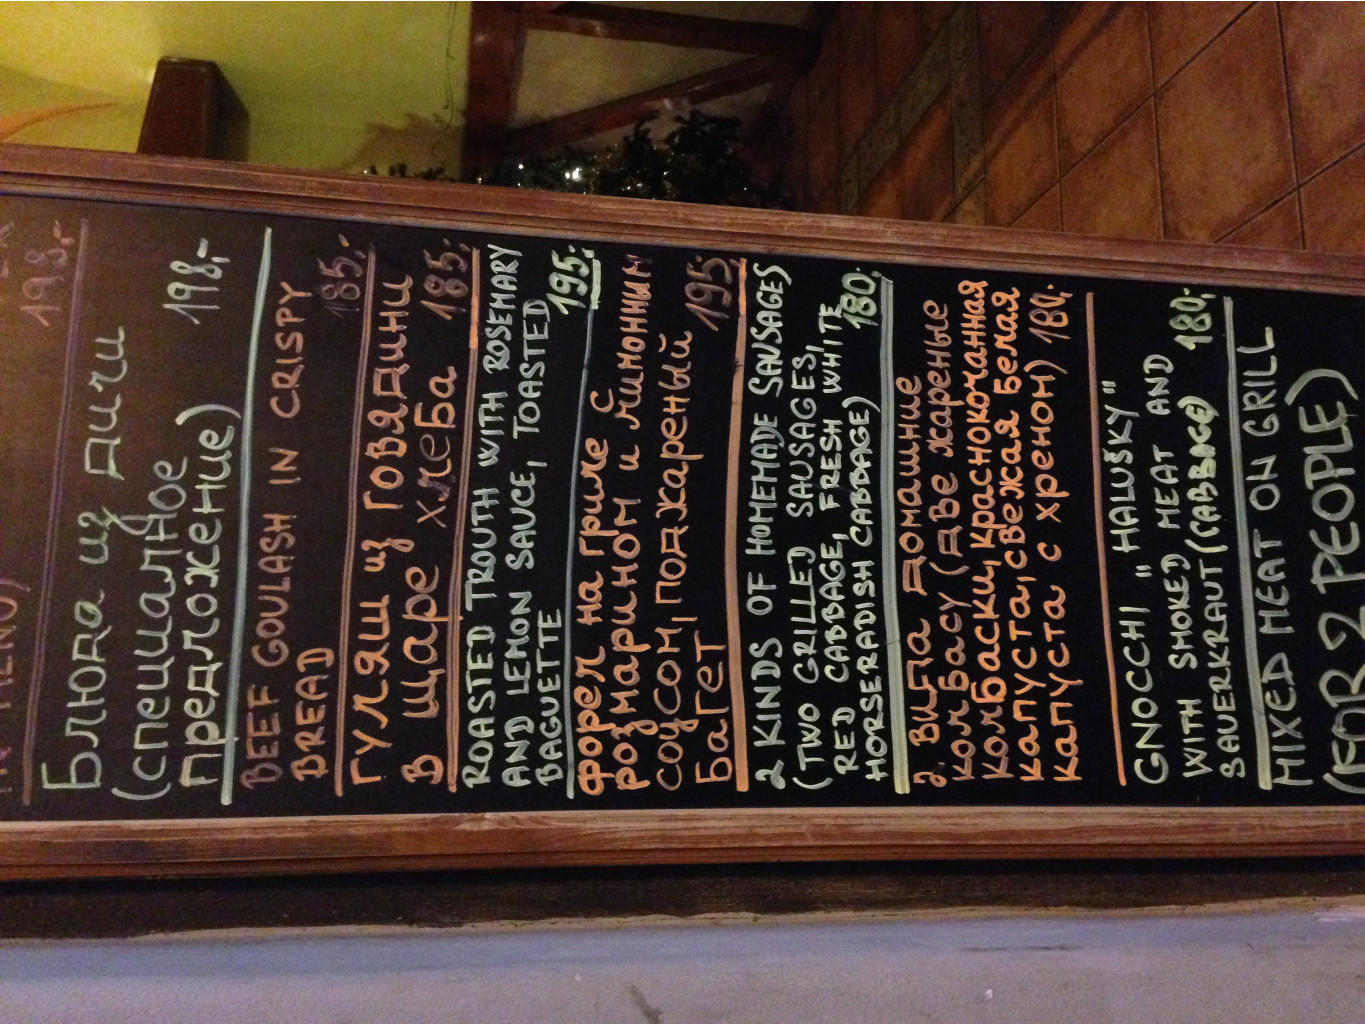 198,-
Блюда из дичи
(специалное
предложение) 198,-
BEEF GOULASH IN CRISPY
BREAD 185,-
Гуляш из говядини
в щаре хлеба 185,-
ROASTED TROUTH WITH ROSEMARY
AND LEMON SAUCE, TOASTED
BAGUETTE 195,-
форел на гриле с
розмарином и лимонным
соусом, поджареный
багет 195,-
2 KINDS OF HOMEMADE SAUSAGES
(TWO GRILLED SAUSAGES,
RED CABBAGE, FRESH WHITE
HORSERADISH CABBAGE) 180,-
2. вида домашние
колбасу (две жареные
колбаски, краснокочанная
капуста, свежая белая
капуста с хреном) 180,-
GNOCCHI „HALUŠKY"
WITH SMOKED MEAT AND
SAUERKRAUT (CABBAGE) 180,-
MIXED MEAT ON GRILL
(FOR 2 PEOPLE)